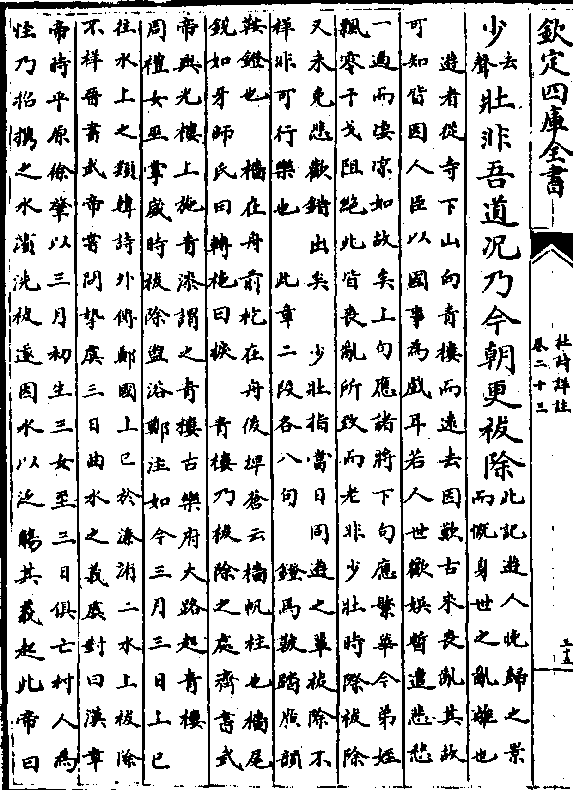 欽定四庫全書
杜詩詳註
卷二十三
三五
少去聲壯非吾道况乃今朝更祓除此記遊人晚歸之景
而慨身世之亂離也
遊者從寺下山向青樓而遠去因歎古來喪亂其故
可知皆因人臣以國事為戲耳若人世歡娱暫遣悲愁
一過而淒凉如故矣上句應諸將下句應繁華今弟姪
飄零干戈阻絶此皆喪亂所致而老非少壯時際祓除
又未免悲歡錯出矣 少壯指當日同遊之輩祓除不
祥非可行樂也 此章二段各八句 鐙馬鞍踏腳頭
鞍鐙也 檣在舟前柁在舟後埤蒼云檣帆柱也檣尾
銳如牙師氏曰轉柂曰捩 青樓乃祓除之處齊書武
帝興光樓上施青漆謂之青樓古樂府大路起青樓
周禮女巫掌歲時祓除釁浴鄭注如今三月三日上巳
往水上之類韓詩外傳鄭國上巳於溱洧二水上祓除
不祥晉書武帝嘗問摯虞三日曲水之義虞對曰漢章
帝時平原徐肇以三月初生三女至三日俱亡村人為
怪乃招攜之水濱洗祓遂因水以泛觴其義起此帝曰